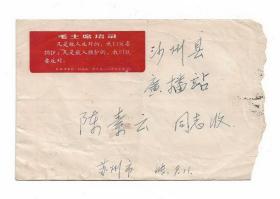 毛主席语录
凡是敌人反对的，我们就要
拥护；凡是敌人拥护的，我们就
要反对。
沙州县
广播站
陈素云 同志收
苏州市